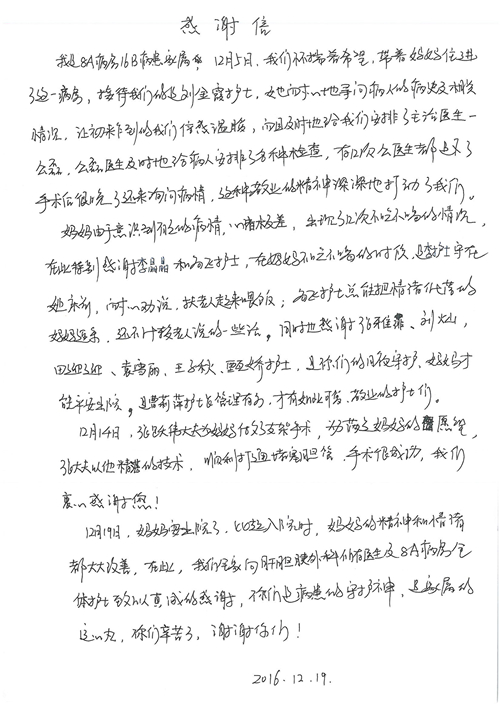 感谢信
我是8A病房16B病患家属，12月5日，我们怀揣着希望，带着妈妈住进
了这一病房，接待我们的是刘金霞护士，她也耐心地寻问病人的病史及相关
情况，让初来乍到的我们倍感温暖；而且及时地给我们安排了主治医生—
么磊，么磊医生及时地给病人安排了各种检查，有几次么医生都是下了
手术后很晚了还来寻问病情，这种敬业的精神深深地打动了我们。
妈妈由于意识到自己的病情，心情极差，出现了几次不吃不喝的情况，
在此特别感谢李晶晶和 护士，在妈妈不吃不喝的时候，是李护士守在
她床前，耐心劝说，扶老人起来喂饭； 护士总能把情绪低落的
妈妈逗乐，还不计较老人说的一些话。同时也感谢张雅菲、刘灿，
田妞妞、袁雪丽、王子秋、甄娇护士，是你们的日夜守护，妈妈才
能平安出院。是曹莉萍护士长管理有方，才有如此可爱、敬业的护士们。
12月14日，张跃伟大夫为妈妈做了支架手术，为落了妈妈的 愿望，
张大夫以他精湛的技术，顺利打通堵塞胆管，手术很成功，我们
衷心感谢您！
12月19日，妈妈要出院了，比起入院时，妈妈的精神和情绪
都大大改善，在此，我们全家向肝胆胰外科所有医生及8A病房全
体护士致以真诚的感谢，你们是病患的守护神，是家属的
定心丸，你们辛苦了，谢谢你们！
2016.12.19.